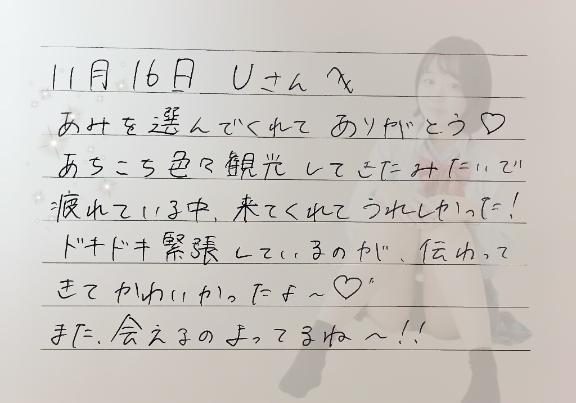 11月16日 Uさんへ
あみを選んでくれて ありがとう♡
あちこち色々観光してきたみたいで
疲れている中、来てくれてうれしかった!
ドキドキ緊張しているのが、伝わって
きてかわいかったよ～♡
また、会えるのまってるね～!!